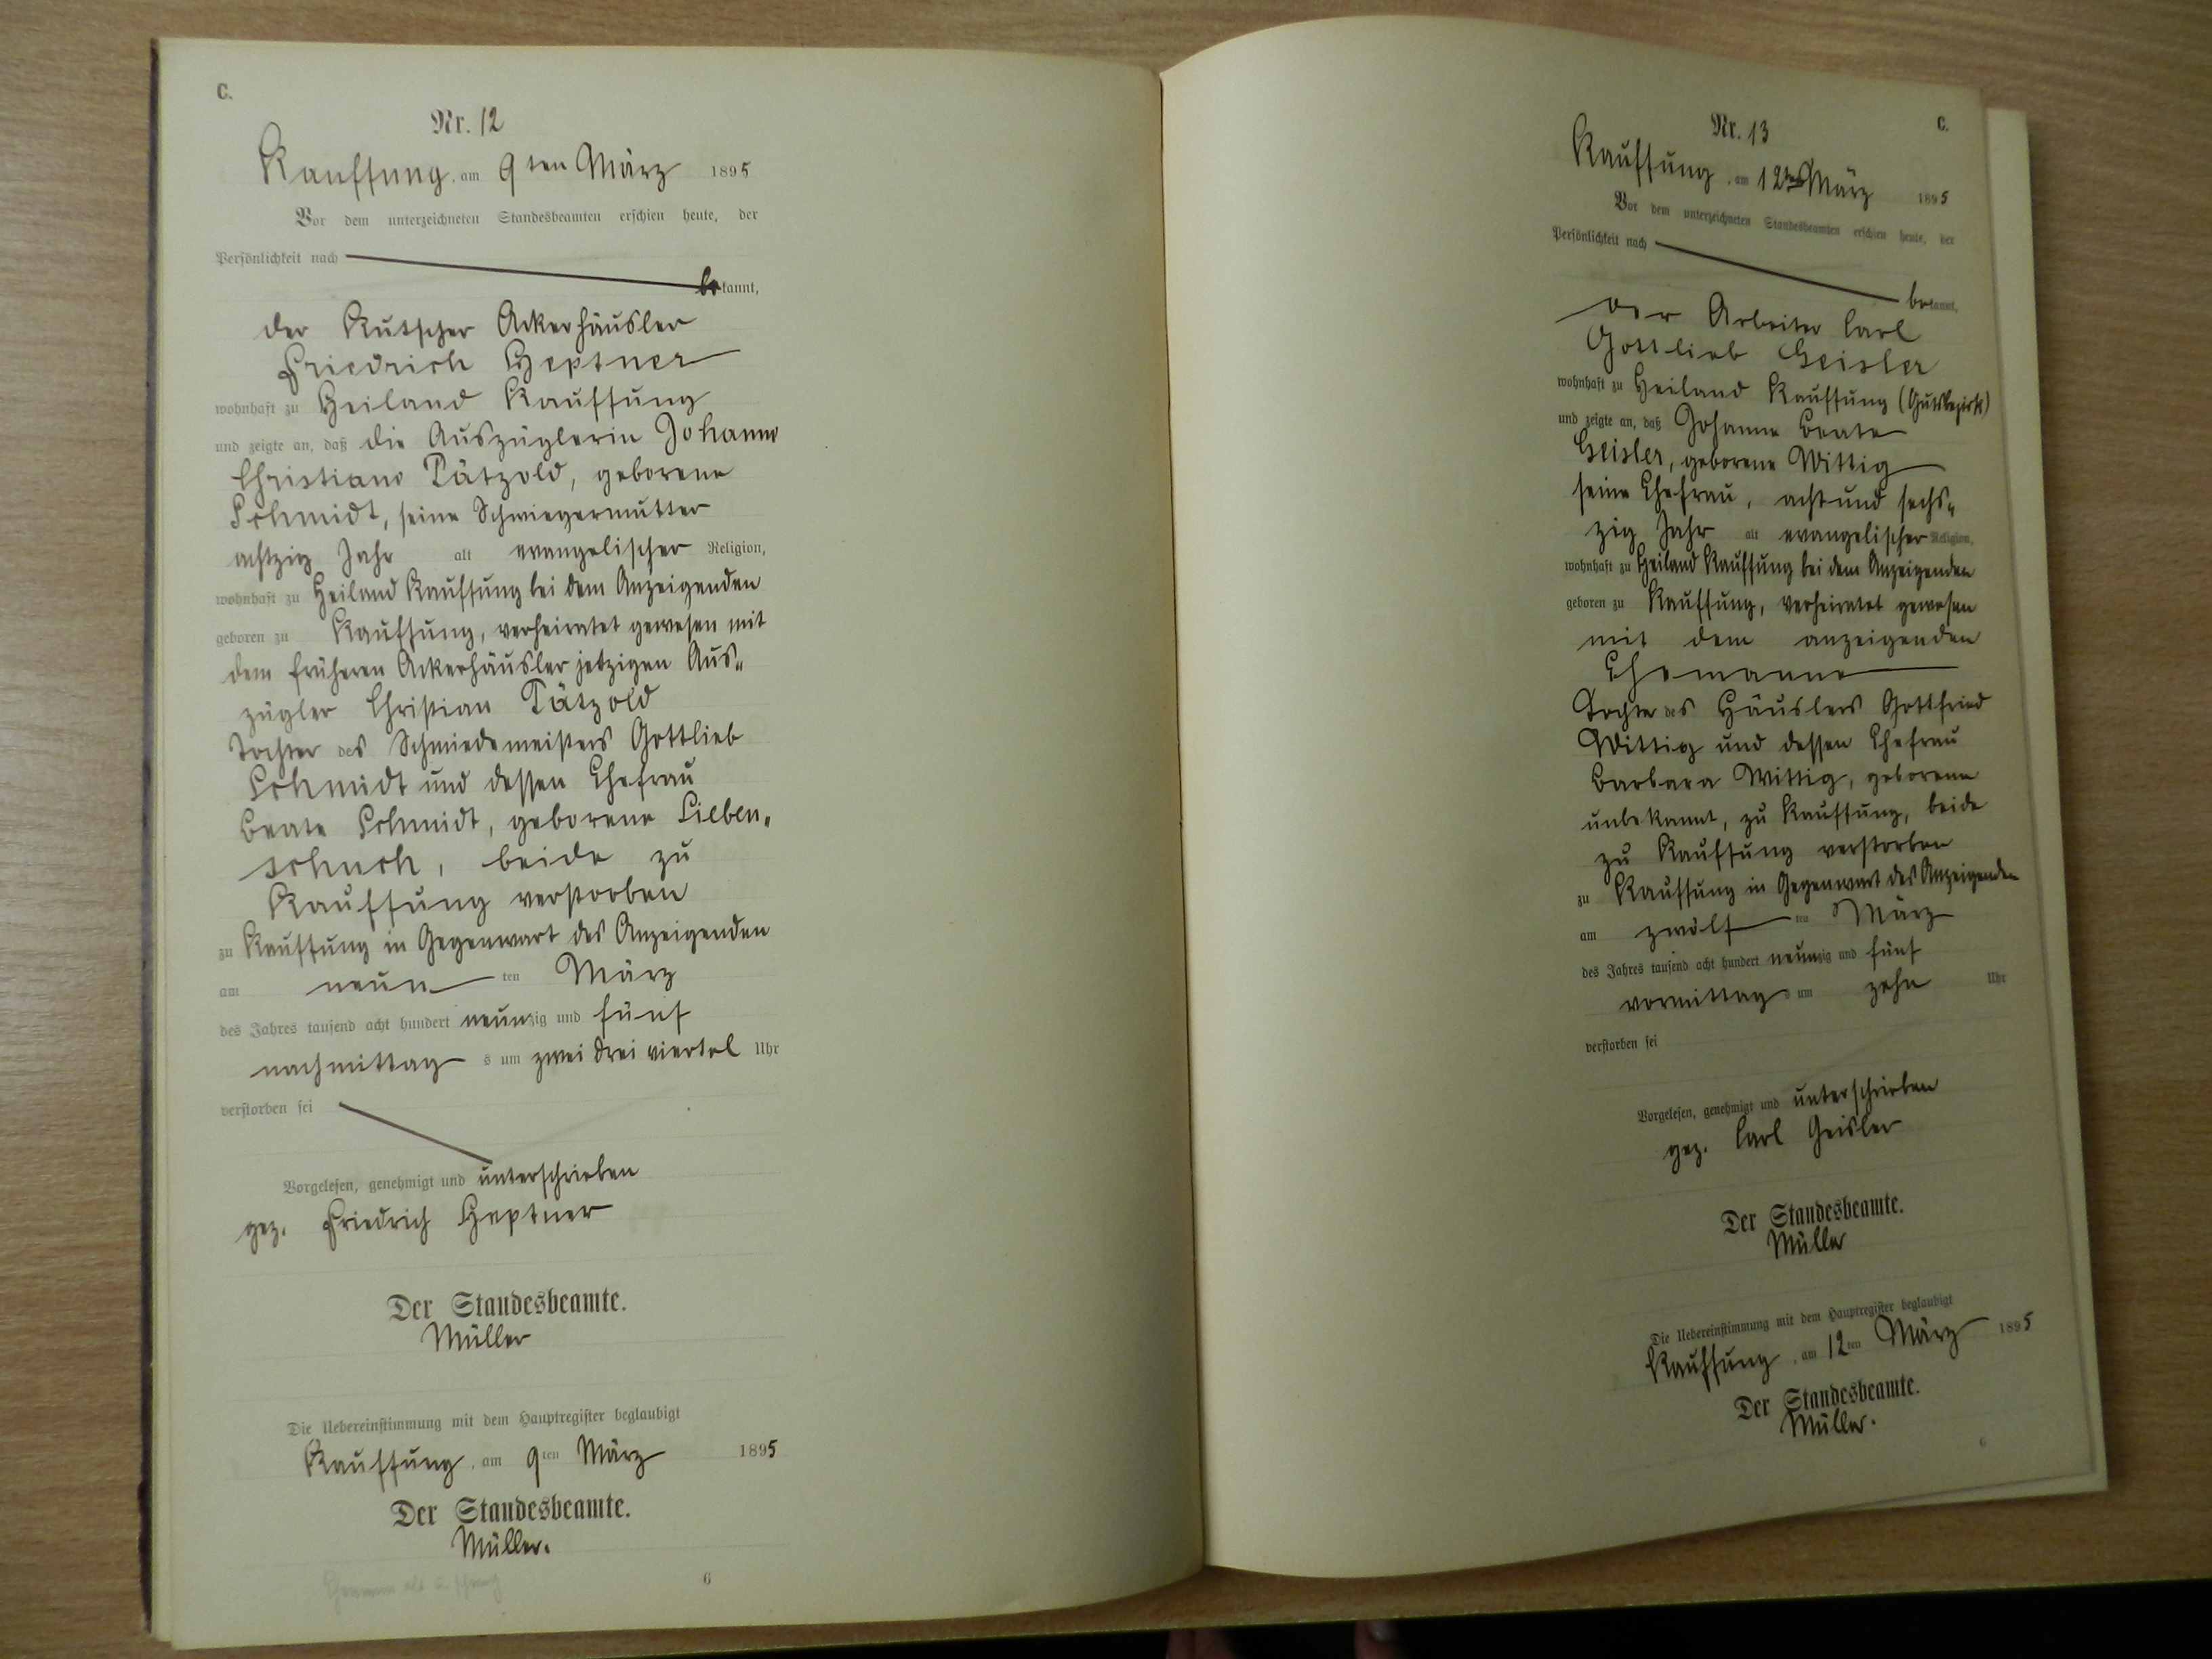 C.
Nr. 12
Kauffung, am 9ten März 1895
Vor dem unterzeichneten Standesbeamten erschien heute, der
Persönlichkeit nach
bekannt,
der Kutscher Ackerhäusler
Friedrich Heptner
wohnhaft zu Heiland Kauffung
und zeigte an, daß die Auszüglerin Johanne
Christiane Pätzold, geborene
Schmidt, seine Schwiegermutter
achtzig Jahr alt evangelischer Religion,
wohnhaft zu Heiland Kauffung bei dem Anzeigenden
geboren zu Kauffung, verheiratet gewesen mit
dem früheren Ackerhäusler jetzigen Aus-
zügler Christian Pätzold
Tochter des Schmiedemeisters Gottlieb
Schmidt und dessen Ehefrau
Beate Schmidt, geborene Lieben-
schuch, beide zu
Kauffung verstorben
zu Kauffung in Gegenwart des Anzeigenden
am neun ten März
des Jahres tausend acht hundert neunzig und fünf
nachmittags um zwei drei viertel Uhr
verstorben sei
Vorgelesen, genehmigt und unterschrieben
gez. Friedrich Heptner
Der Standesbeamte.
Müller
Die Uebereinstimmung mit dem Hauptregister beglaubigt
Kauffung, am 9ten März 1895
Der Standesbeamte.
Müller.
6
Nr. 13
C.
Kauffung, am 12ten März 1895
Vor dem unterzeichneten Standesbeamten erschien heute, der
Persönlichkeit nach
bekannt,
der Arbeiter Carl
Gottlieb Geisler
wohnhaft zu Heiland Kauffung (Gutsbezirk)
und zeigte an, daß Johanne Beate
Geisler, geborene Wittig
seine Ehefrau, acht und sechs-
zig Jahr alt evangelischer Religion,
wohnhaft zu Heiland Kauffung bei dem Anzeigenden
geboren zu Kauffung, verheiratet gewesen
mit dem anzeigenden
Ehemanne
Tochter des Häuslers Gottfried
Wittig und dessen Ehefrau
Barbara Wittig, geborene
unbekannt, zu Kauffung, beide
zu Kauffung verstorben
zu Kauffung in Gegenwart des Anzeigenden
am zwölf ten März
des Jahres tausend acht hundert neunzig und fünf
vormittags um zehn Uhr
verstorben sei
Vorgelesen, genehmigt und unterschrieben
gez. Carl Geisler
Der Standesbeamte.
Müller
Die Uebereinstimmung mit dem Hauptregister beglaubigt
Kauffung, am 12ten März 1895
Der Standesbeamte.
Müller.
6